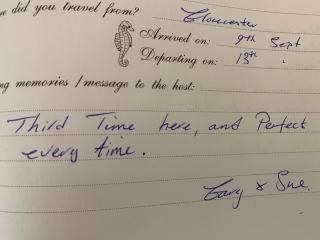 re did you travel from? Gloucester
Arrived on: 9th Sept
Departing on: 13th .
ng memories / message to the host:
Third Time here, and Perfect
every time.
Gary & Sue.